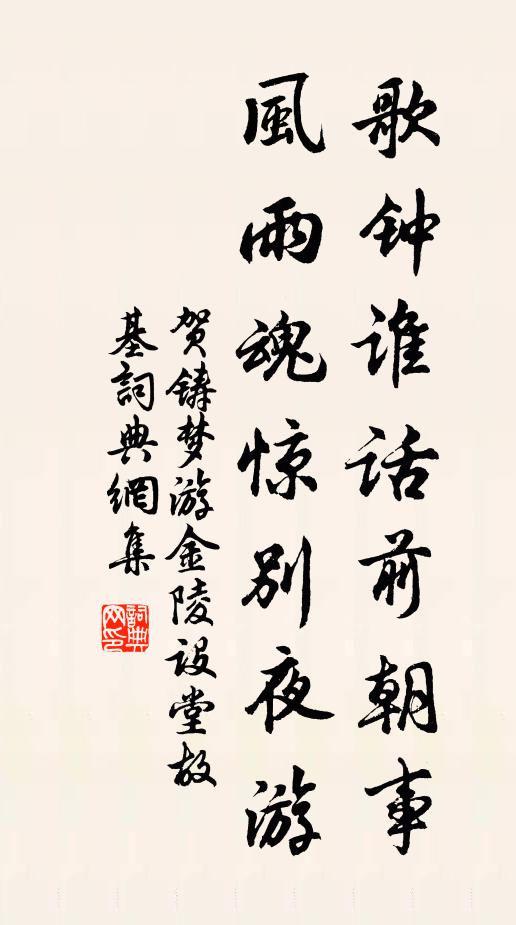 歌钟谁话前朝事
風雨魂惊别夜游
贺铸梦游金陵设堂故
基詞典網集
詞典
网印